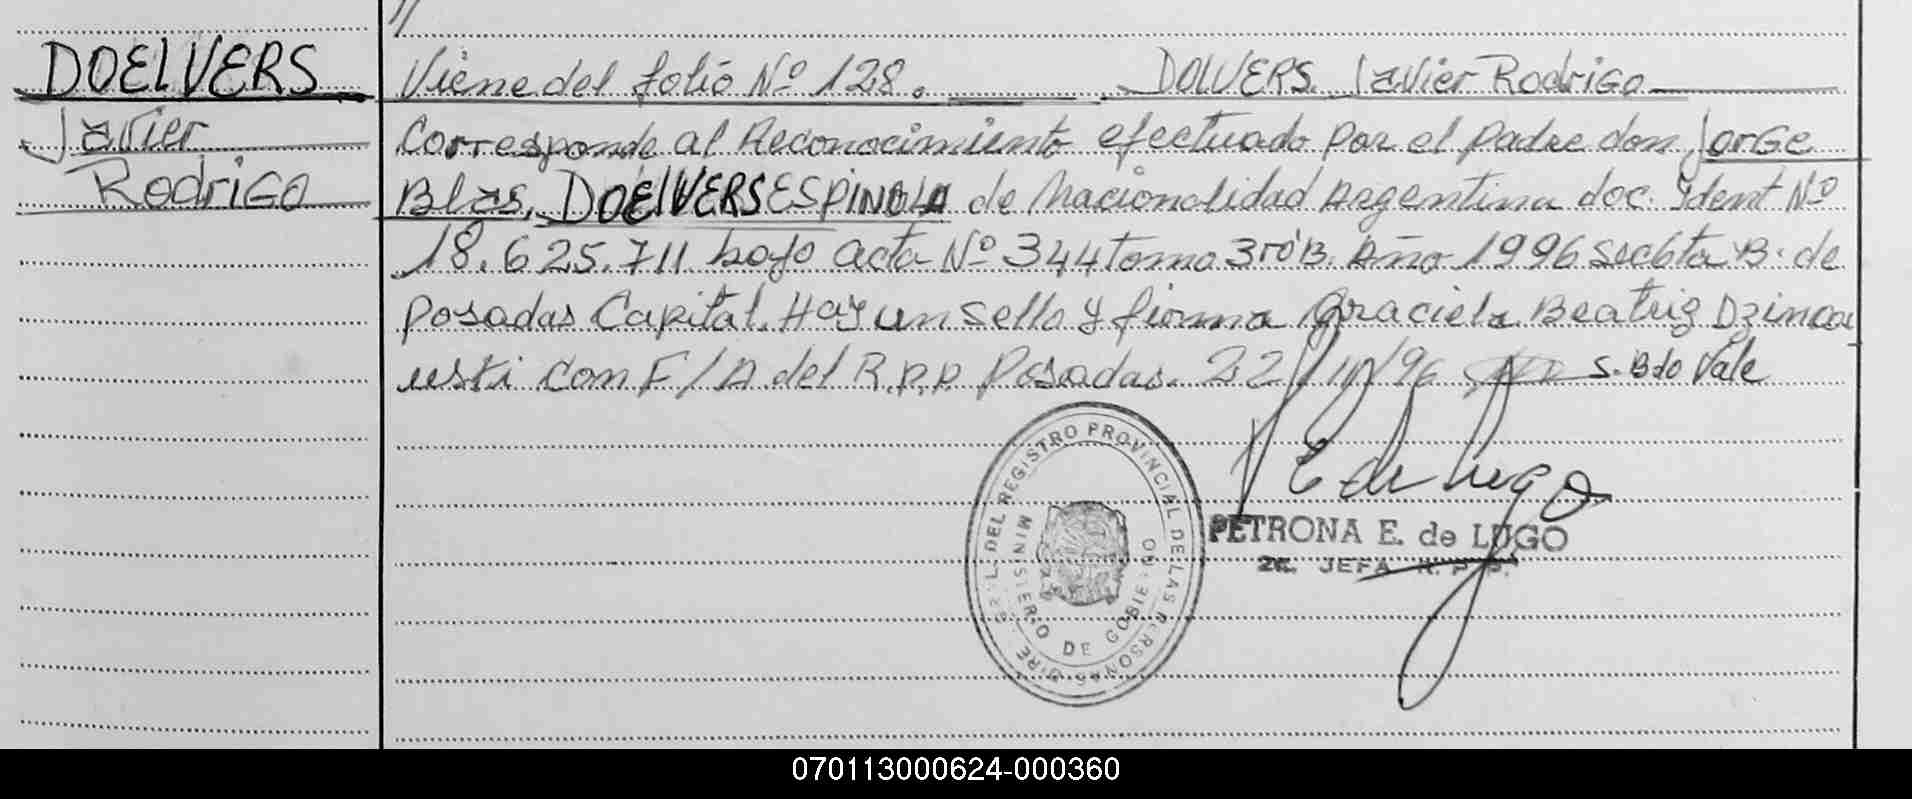 DOELVERS
Javier
Rodrigo
Viene del folio Nº 128. DOLVERS Javier Rodrigo
Corresponde al Reconocimiento efectuado por el padre don Jorge
Blas, DOELVERS ESPINOLA de Nacionalidad Argentina doc. Ident Nº
18.625.711 bajo acta Nº 344 tomo 3rº B. Año 1996 B. de
Posadas Capital. Hay un sello y firma Graciela Beatriz
con F/A del R.P.P Posadas. 22/10/96 S. Bdo Vale
E de Lugo
PETRONA E. de LUGO
JEFA R. P. P.
DEL REGISTRO PROVINCIAL DE LAS PERSONAS
MINISTERIO DE GOBIERNO
070113000624-000360